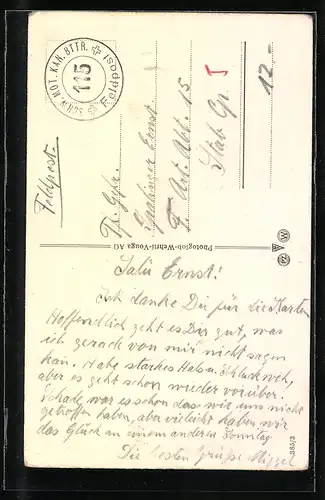 SCHW. MOT. KAN. BTTR. Feldpost
115
Feldpost.
Tf. Gfr.
Ernst
F. Art. Abt. 15
Stab Gr.
5
12.-
Photoglob-Wehrli-Vouga AG
PZ W
Salü Ernst!
Ich danke Dir für die Karten
Hoffendlich geht es Dir gut, was
ich gerade von mir nicht sagen
kan. Habe starkes Hals u. Schluckweh,
aber es geht schon wieder vorüber.
Schade war es schon das wir uns nicht
getroffen haben, aber vieleicht haben wir
das Glück an einem andern Sonntag
Die besten Grüsse
385/3